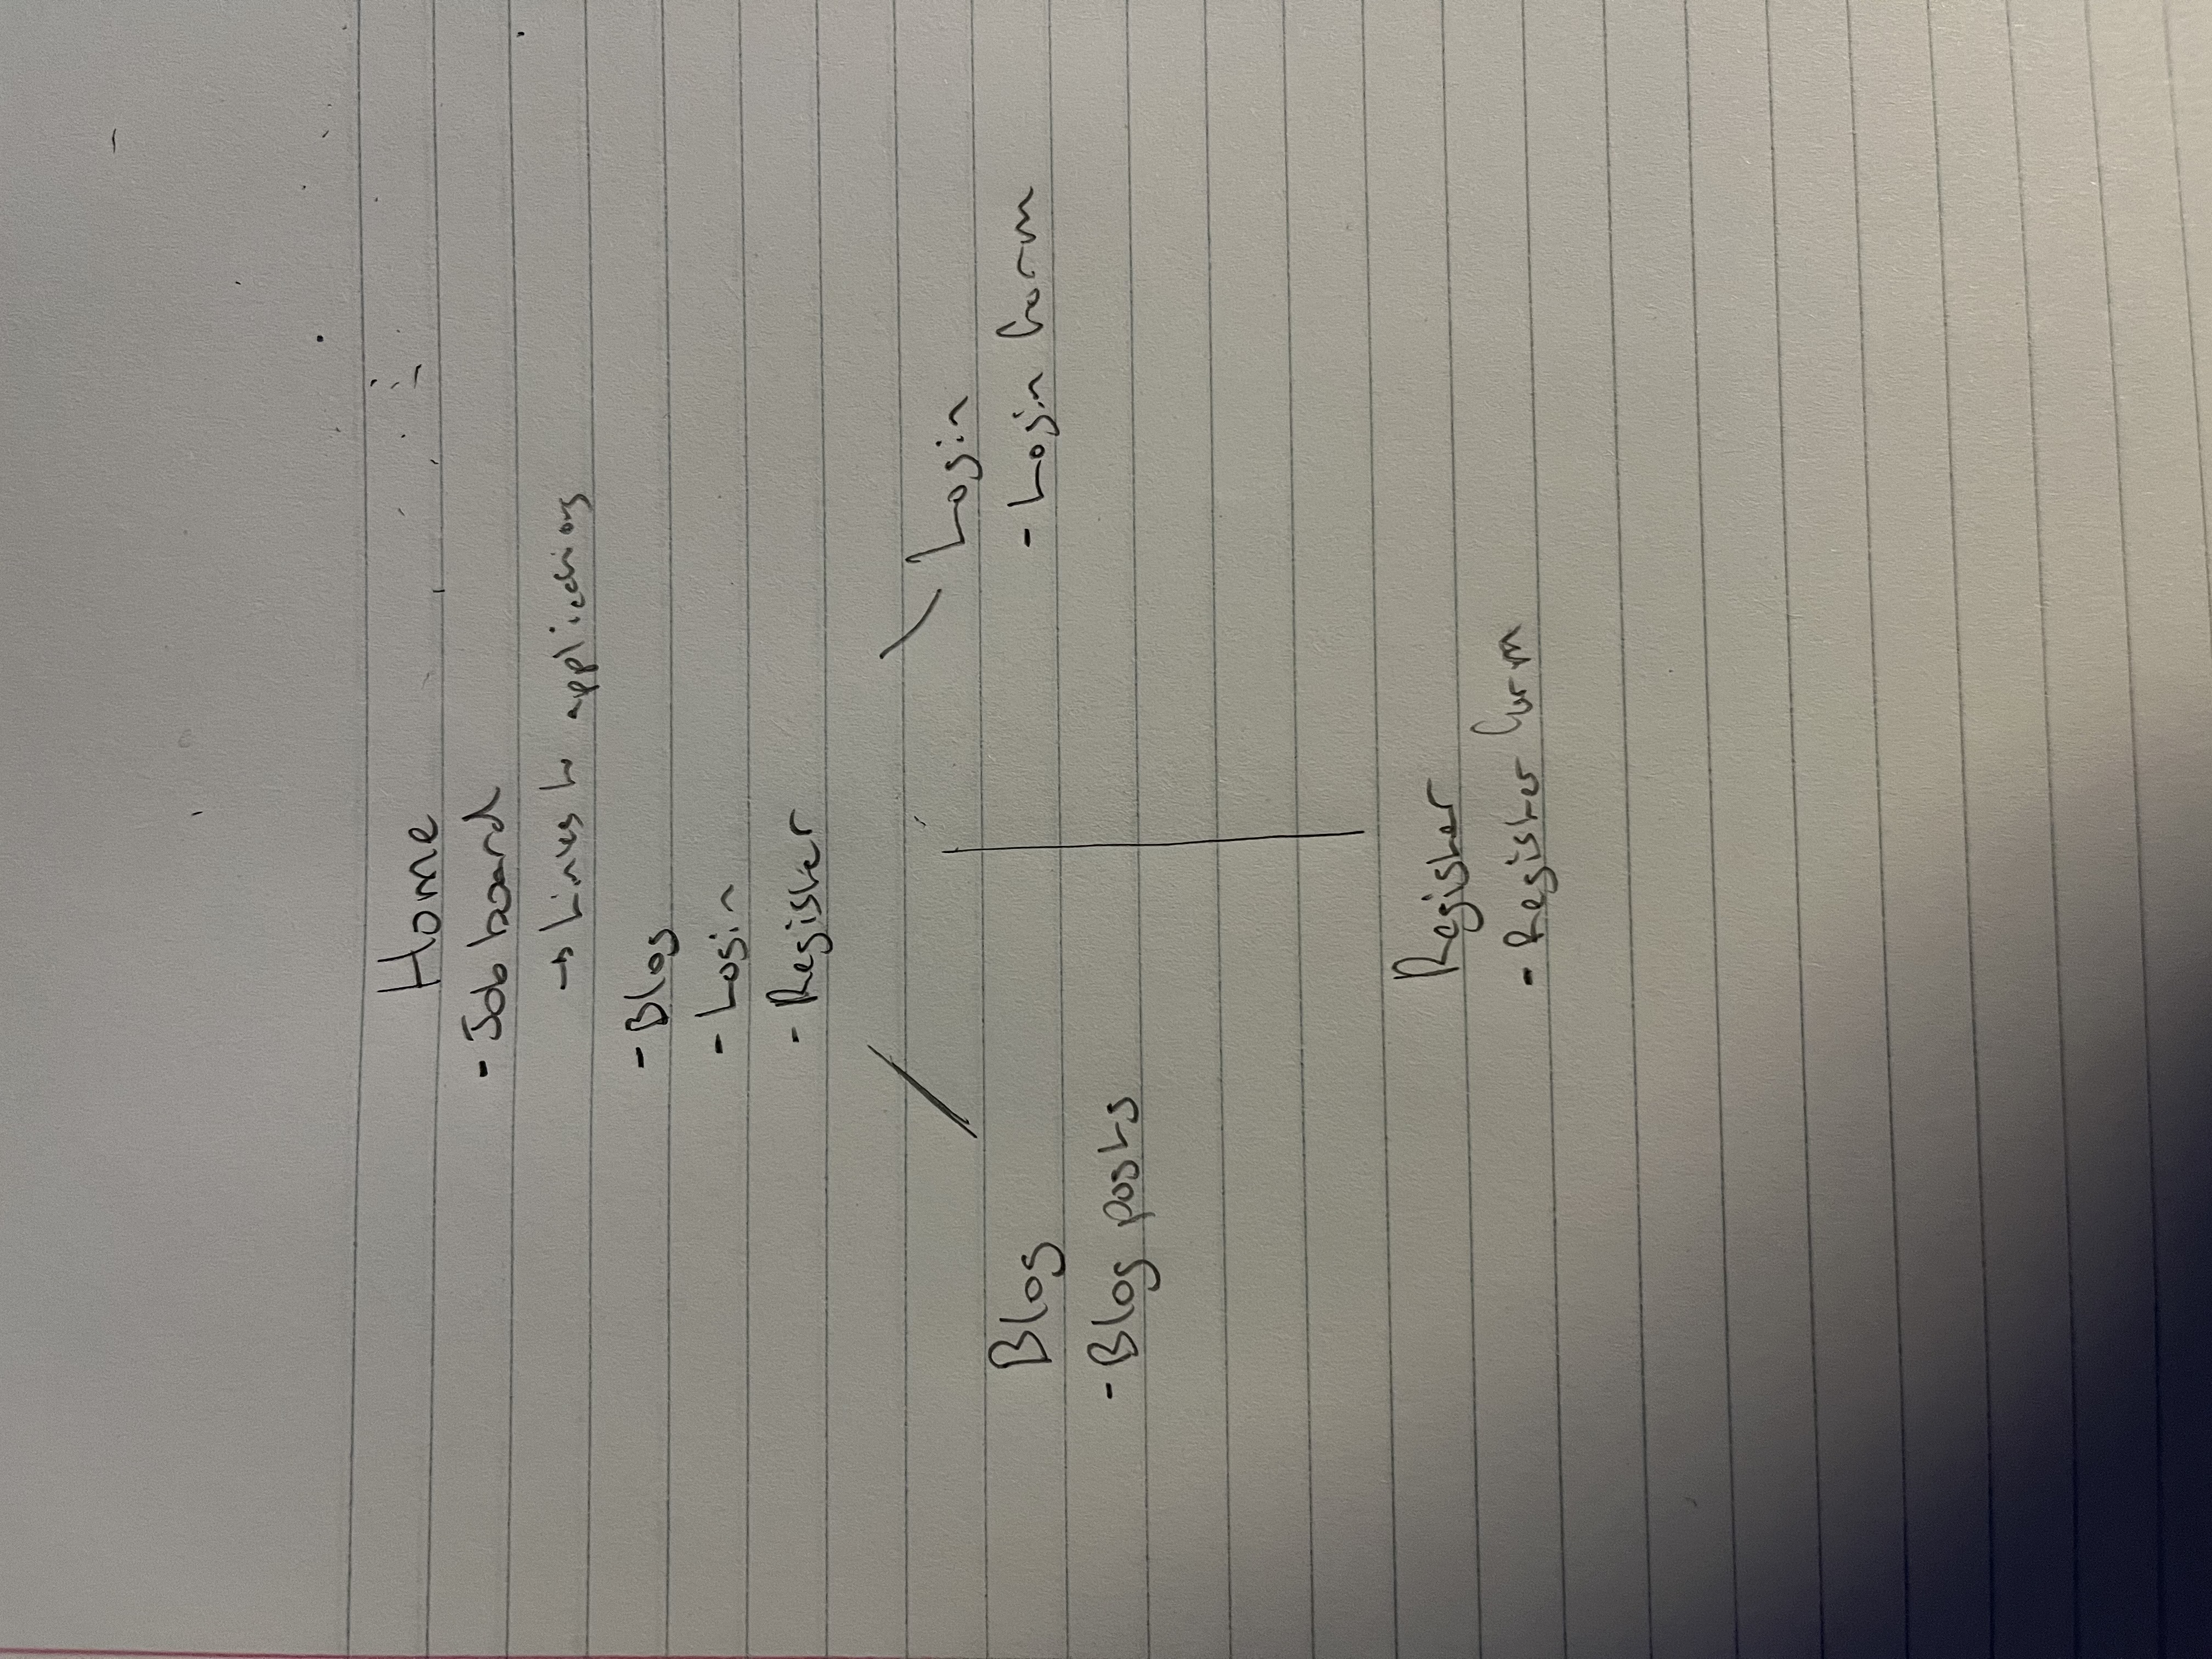 Home
- Job board
→ Links to applications
- Blog
- Login
- Register
Login
- Login form
Blog
- Blog posts
Register
- Register form